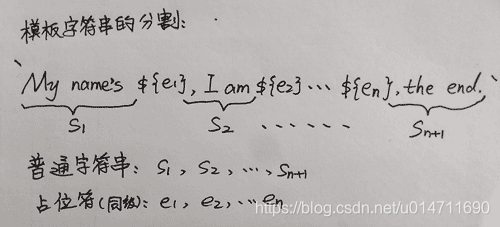 模板字符串的分割:
`My name's ${e1}, I am ${e2}... ${en}, the end.`
S1 S2 ...... Sn+1
普通字符串: S1, S2, ..., Sn+1
占位符(同级): e1, e2, ... en
https://blog.csdn.net/u014711690